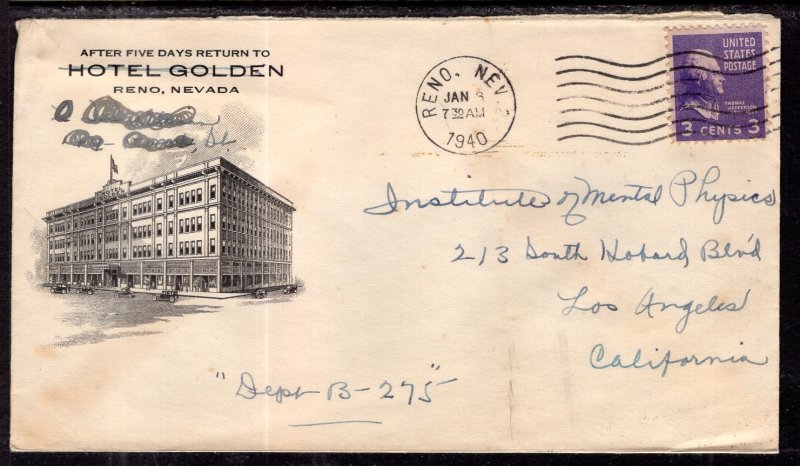 AFTER FIVE DAYS RETURN TO
HOTEL GOLDEN
RENO, NEVADA
RENO, NEV. 2
JAN
7 30 AM
1940
UNITED
STATES
POSTAGE
THOMAS
JEFFERSON
3 CENTS 3
Institute of Mental Physics
213 South Hobard Blvd
Los Angeles
California
"Dept B-275"